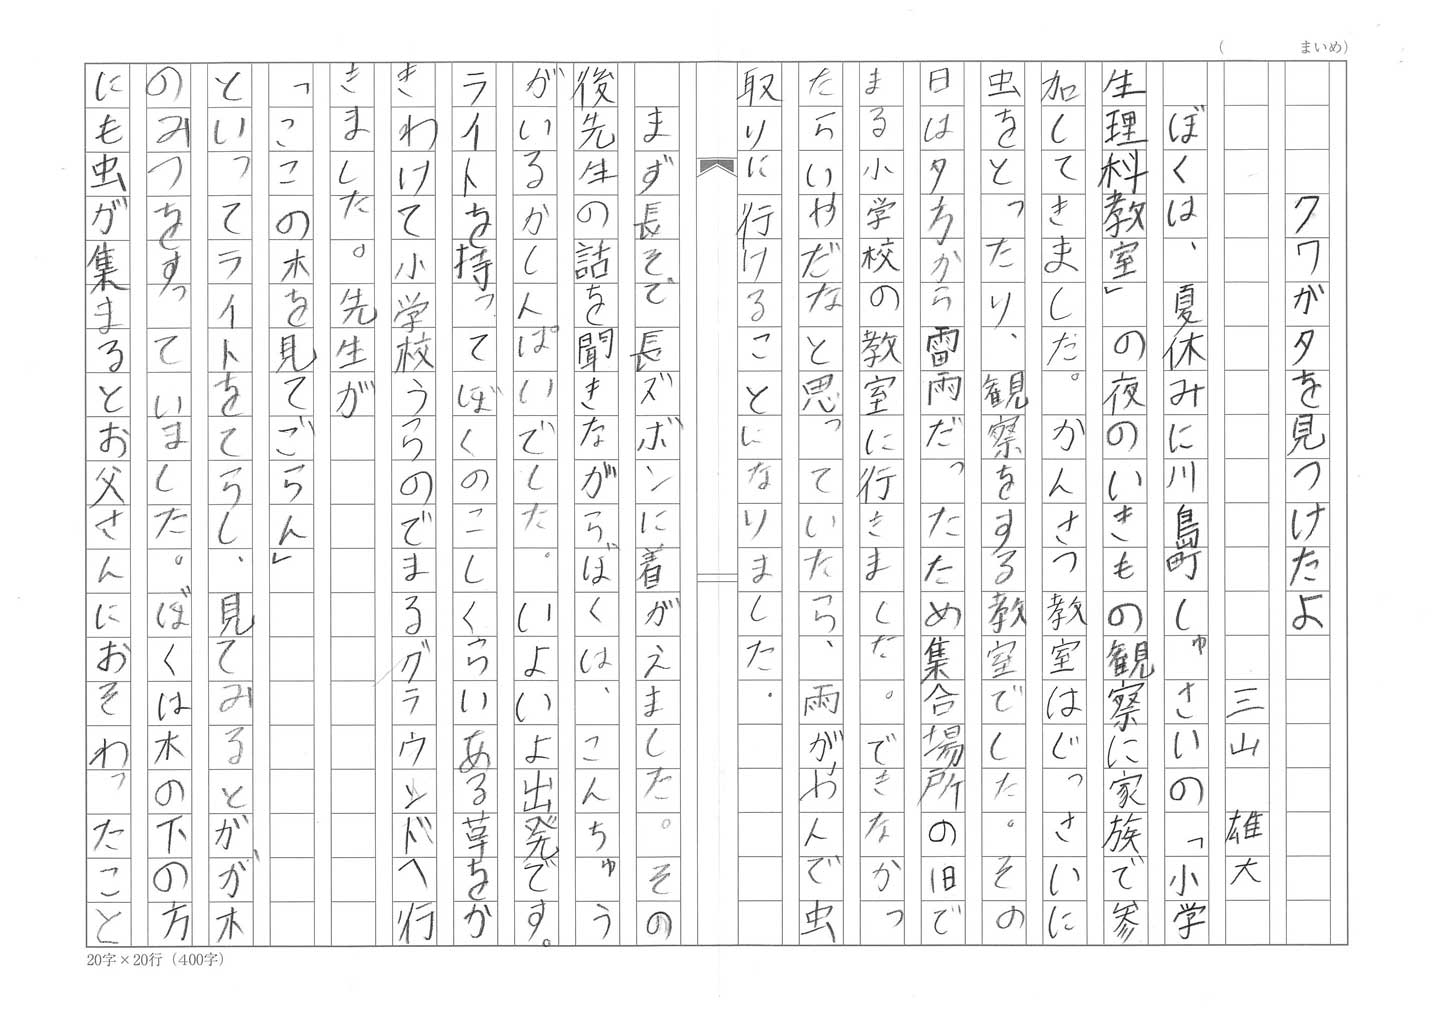 (　　　まいめ)
クワガタを見つけたよ
三山　雄大
ぼくは、夏休みに川島町しゅさいの「小学
生理科教室」の夜のいきもの観察に家族で参
加してきました。かんさつ教室はじっさいに
虫をとったり、観察をする教室でした。その
日は夕方から雷雨だったため集合場所の旧で
まる小学校の教室に行きました。できなかっ
たらいやだなと思っていたら、雨がやんで虫
取りに行けることになりました。
まず長そで長ズボンに着がえました。その
後先生の話を聞きながらぼくは、こんちゅう
がいるかしんぱいでした。いよいよ出発です。
ライトを持ってぼくのこしくらいある草をか
きわけて小学校うらのでまるグラウンドへ行
きました。先生が
「ここの木を見てごらん」
といってライトをてらし、見てみるとガが木
のみつをすっていました。ぼくは木の下の方
にも虫が集まるとお父さんにおそわったこと
20字×20行（400字）